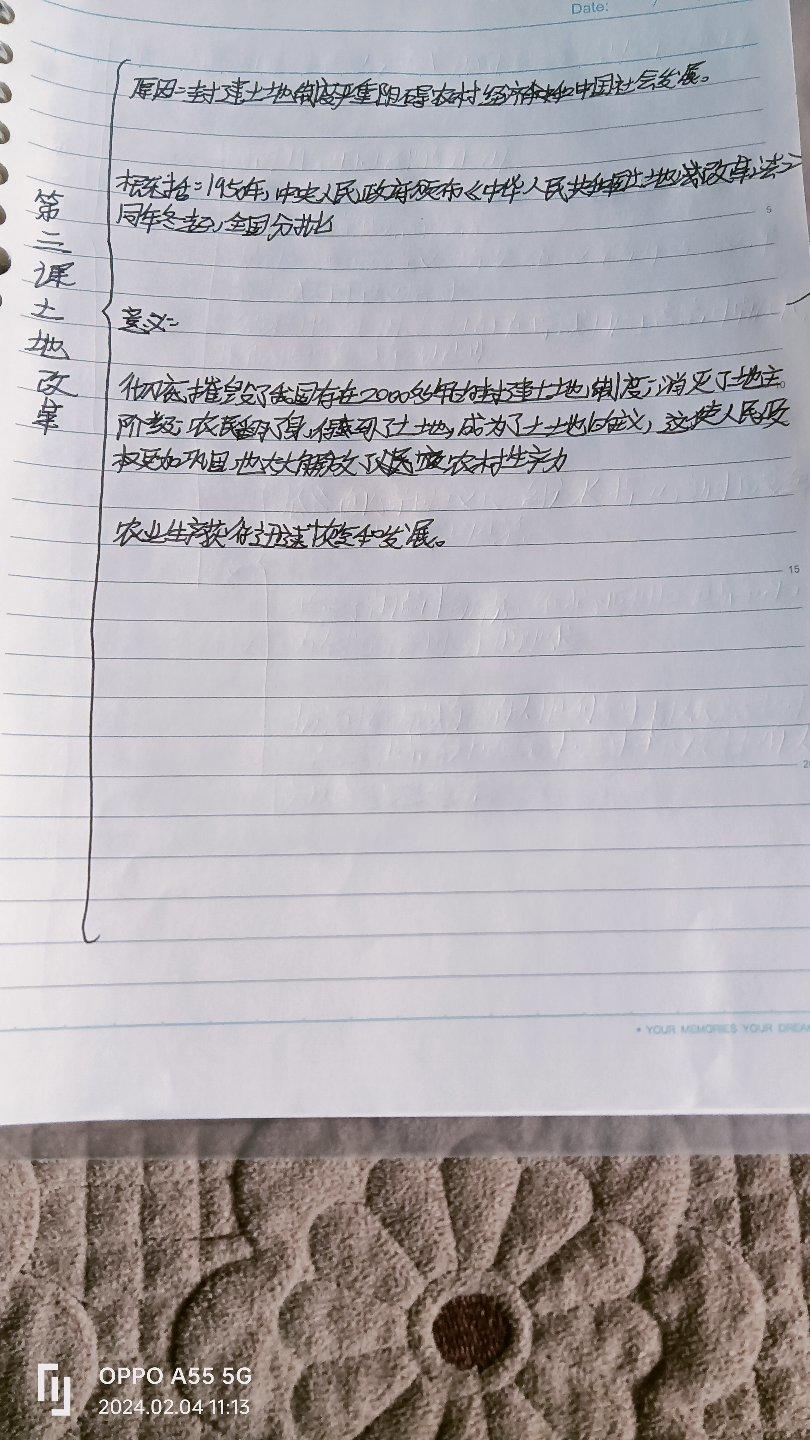 Date:
第三课土地改革
原因:封建土地制度严重阻碍农村经济和中国社会发展。
概括:1950年,中央人民政府颁布《中华人民共和国土地改革法》
同年冬起,全国分批
意义:
彻底摧毁了我国存在2000多年的封建土地制度;消灭了地主
阶级;农民翻了身,得到了土地,成为了土地的主人,这使人民政
权更加巩固,也大大解放了农村生产力
农业生产获得迅速恢复和发展。
5
15
• YOUR MEMORIES YOUR DREAM
OPPO A55 5G
2024.02.04 11:13